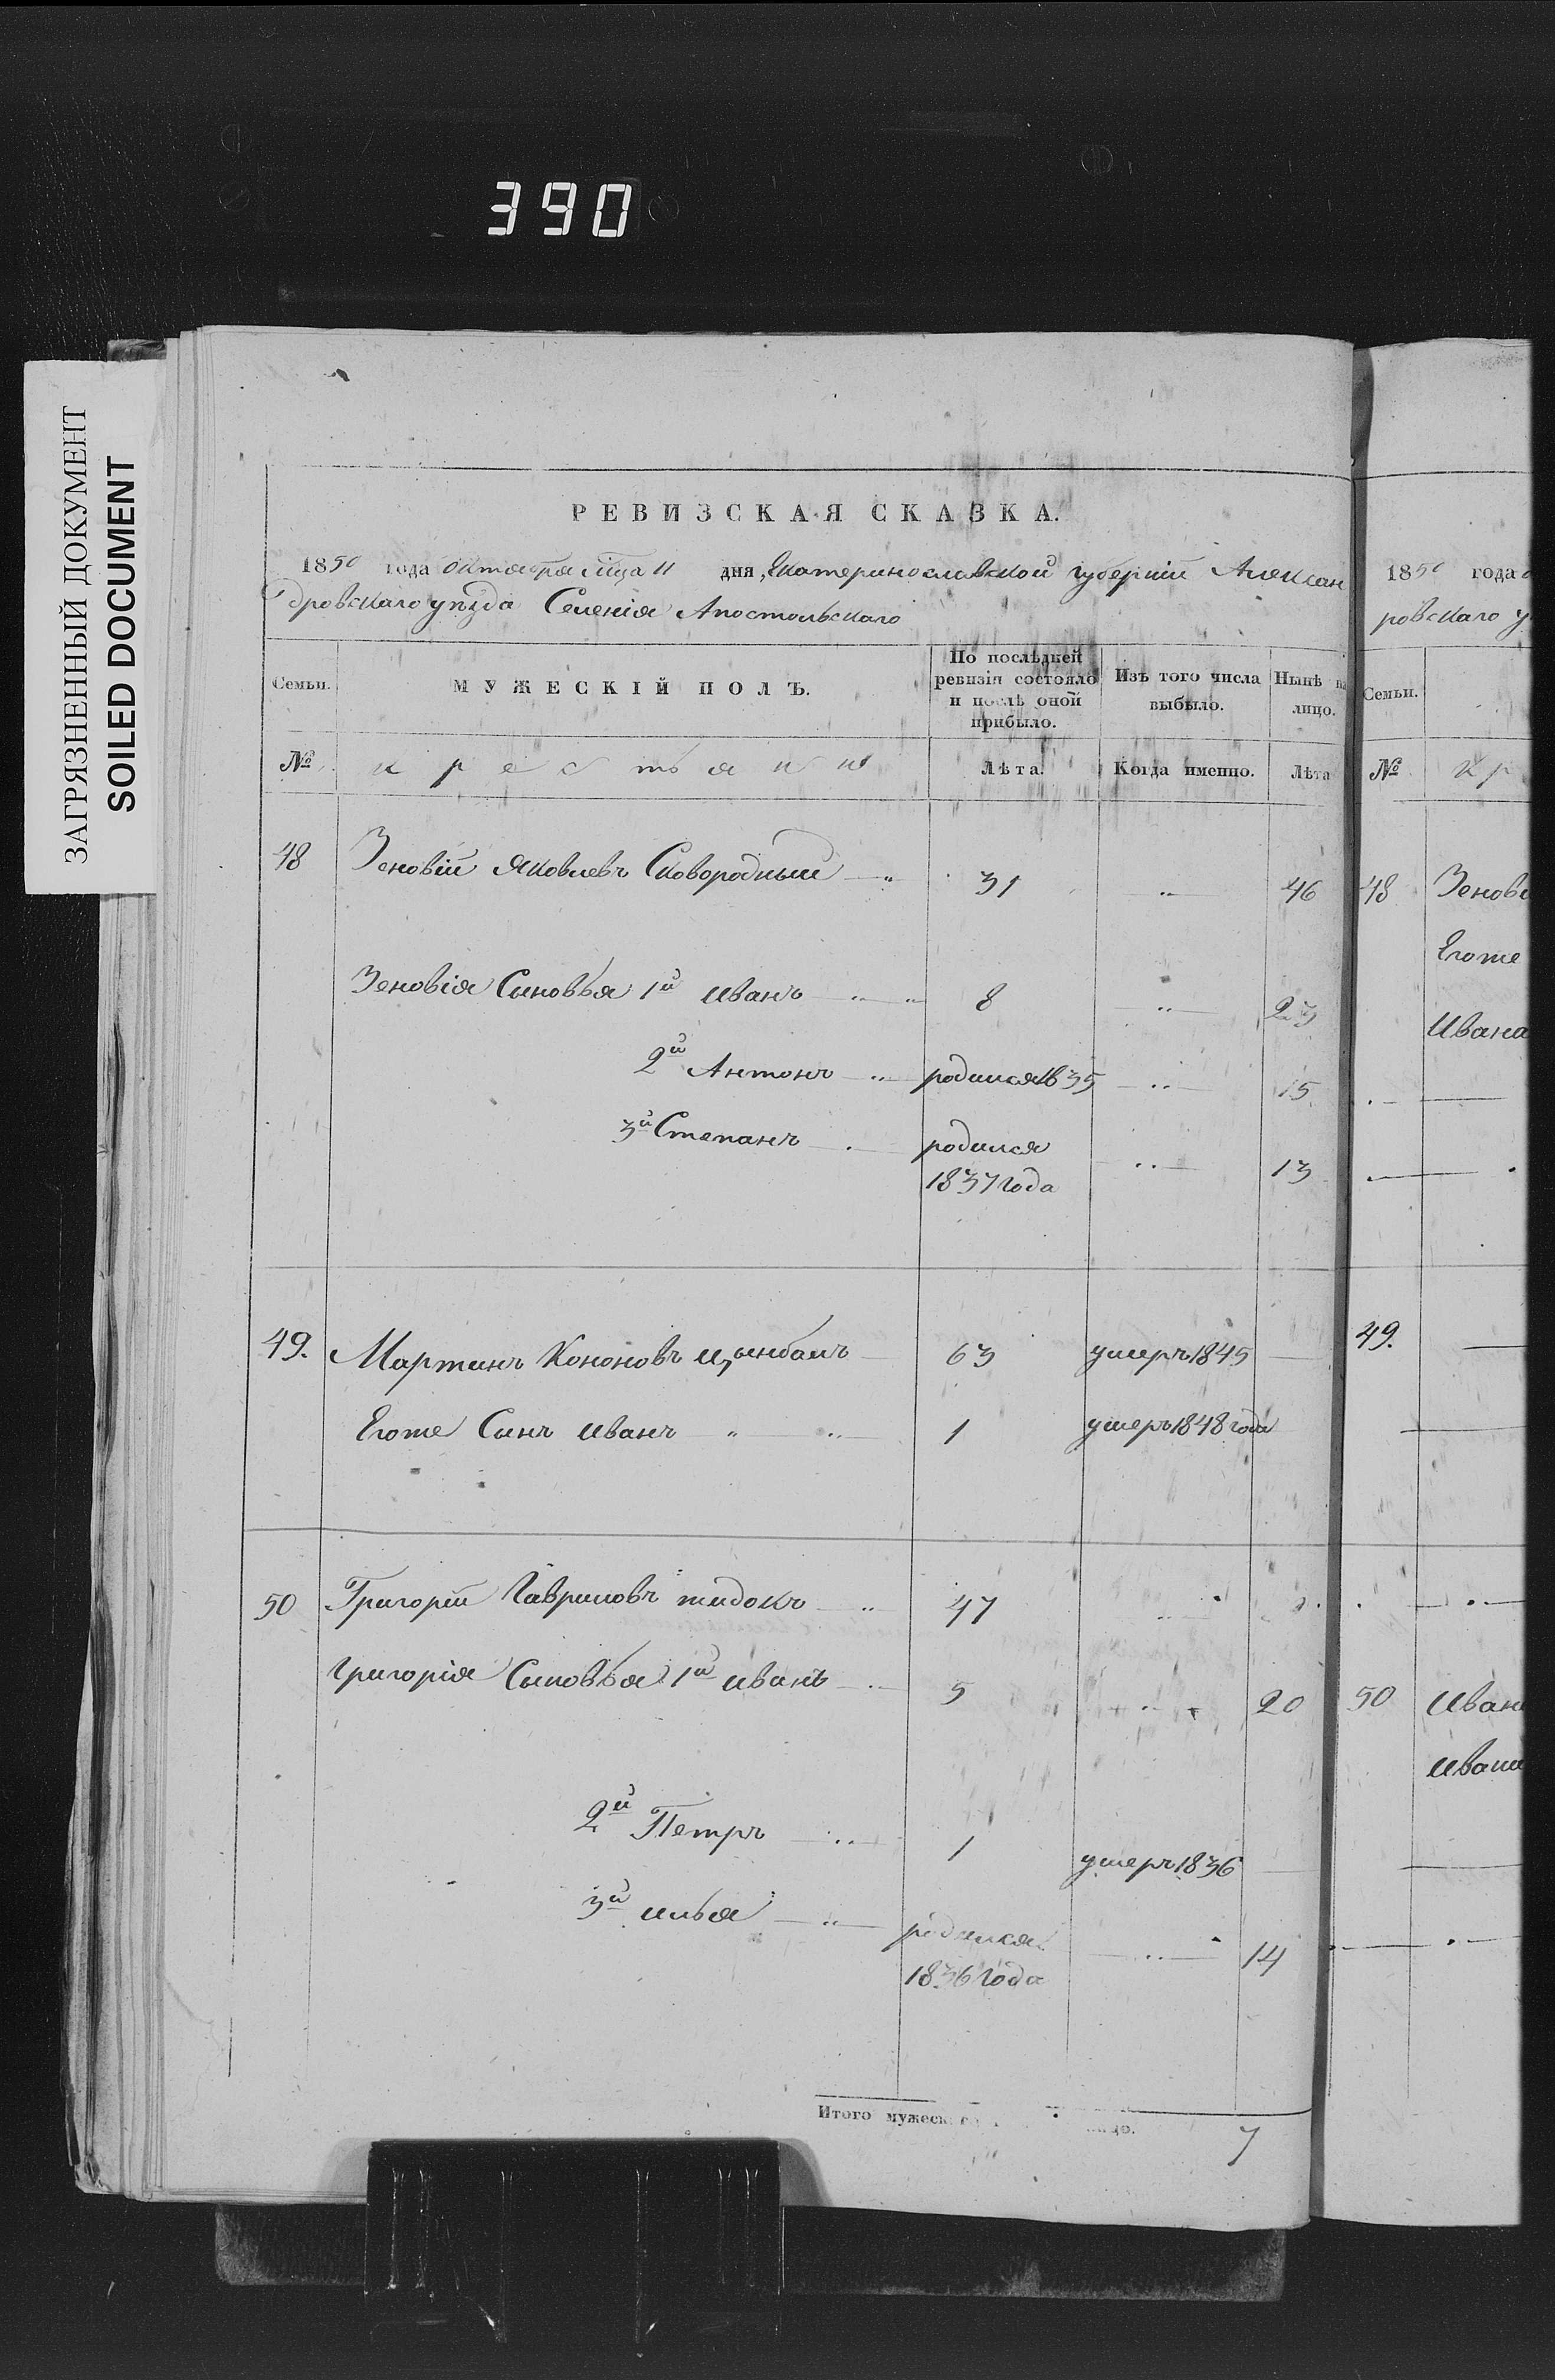 390
ЗАГРЯЗНЕННЫЙ ДОКУМЕНТ
SOILED DOCUMENT
РЕВИЗСКАЯ СКАЗКА.
1850 года октября мца 11 дня, Екатеринославской губернiи Алексан
дровскаго уѣзда Селенiя Апостольскаго
Семьи. МУЖЕСКІЙ ПОЛЪ. По послѣдней ревизіи состояло и послѣ оной прибыло. Изъ того числа выбыло. Нынѣ на лицо.
№ крестьяни Лѣта. Когда именно. Лѣта
48 Зеновiй Яковлевъ Сковородный 31 46
Зеновiя Сыновья 1й иванъ 8 23
2й Антонъ родился 1835 15
3й Степанъ родился 1837 года 13
49. Мартинъ Кононовъ Цынбалъ 63 умеръ 1845
Егоже Сынъ иванъ 1 умеръ 1848 года
50 Григорiй Гавриловъ 47
григорiя Сыновья 1й иванъ 5 20
2й Петръ 1 умеръ 1836
3й илья родился 1836 года 14
Итого мужеск лицо. 7
1850 года
ровскаго у
Семьи.
№ кр
48 Зенов
Егоже
Ивана
49.
50 Иван
иван